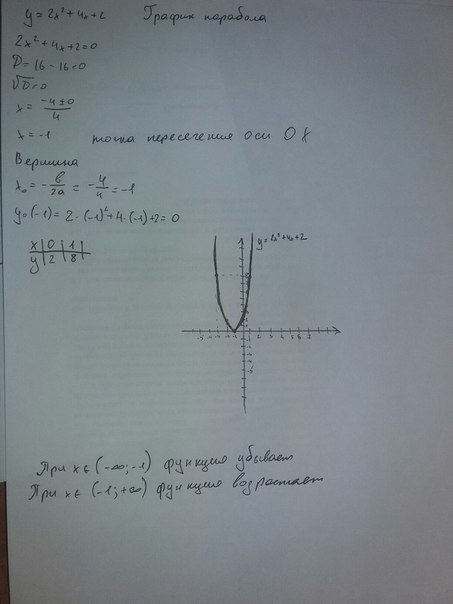 y = 2x² + 4x + 2 График парабола
2x² + 4x + 2 = 0
D = 16 - 16 = 0
√D = 0
x = (-4 ± 0)/4
x = -1 точка пересечения оси OX
Вершина
x₀ = -в/2a = -4/4 = -1
y₀(-1) = 2·(-1)² + 4·(-1) + 2 = 0
x | 0 | 1 |
y | 2 | 8 |
y = 2x² + 4x + 2
При x ∈ (-∞; -1) функция убывает
При x ∈ (-1; +∞) функция возрастает